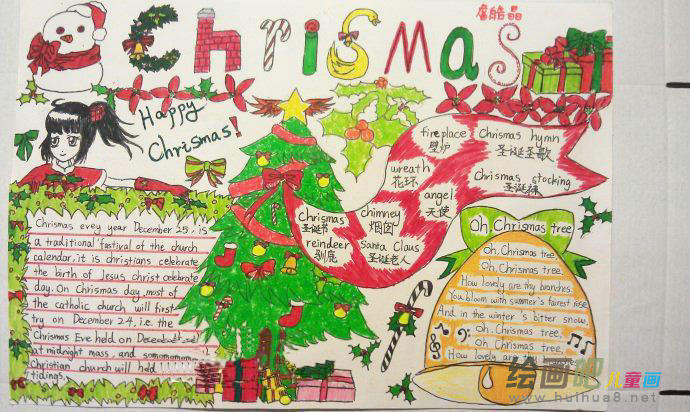 Chrismas
席皓晶
Happy
Chrismas!
fireplace
壁炉
Chrismas hymn
圣诞圣歌
wreath
花环
angel
天使
Chrismas stocking
圣诞袜
Chrismas
圣诞节
chimney
烟囱
reindeer
驯鹿
Santa Claus
圣诞老人
Chrismas evey year December 25, is
a traditional festival of the church
calendar, it is christians celebrate
the birth of Jesus christ celebrate
day. On Chrismas day, most of
the catholic church will first
try on December 24, i.e. the
Chrismas Eve held on
at midnight mass, and
Christian church will held
tidings.
Oh, Chrismas tree
Oh, Chrismas tree,
Oh, Chrismas tree,
How lovely are thy branches.
You bloom with summer's fairest rise,
And in the winter's bitter snow,
Oh, Chrismas tree,
oh Chrismas tree,
How lovely are
绘画吧 儿童画
www.huihua8.net